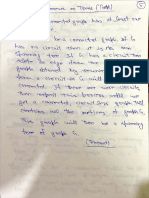 Theorem on Trees (Tree)
connected graph has at least one
be a connected graph. it
has no circuit then it is its own
spanning tree. If G has a circuit then
delete an edge from the
graph obtained by removing
from a circuit in G will
connected. If there are more circuits
then repeat this process until we
get a connected, circuit less graph that
contains all the vertices of graph G.
This graph will then be a spanning
tree of graph G.
(Proved)